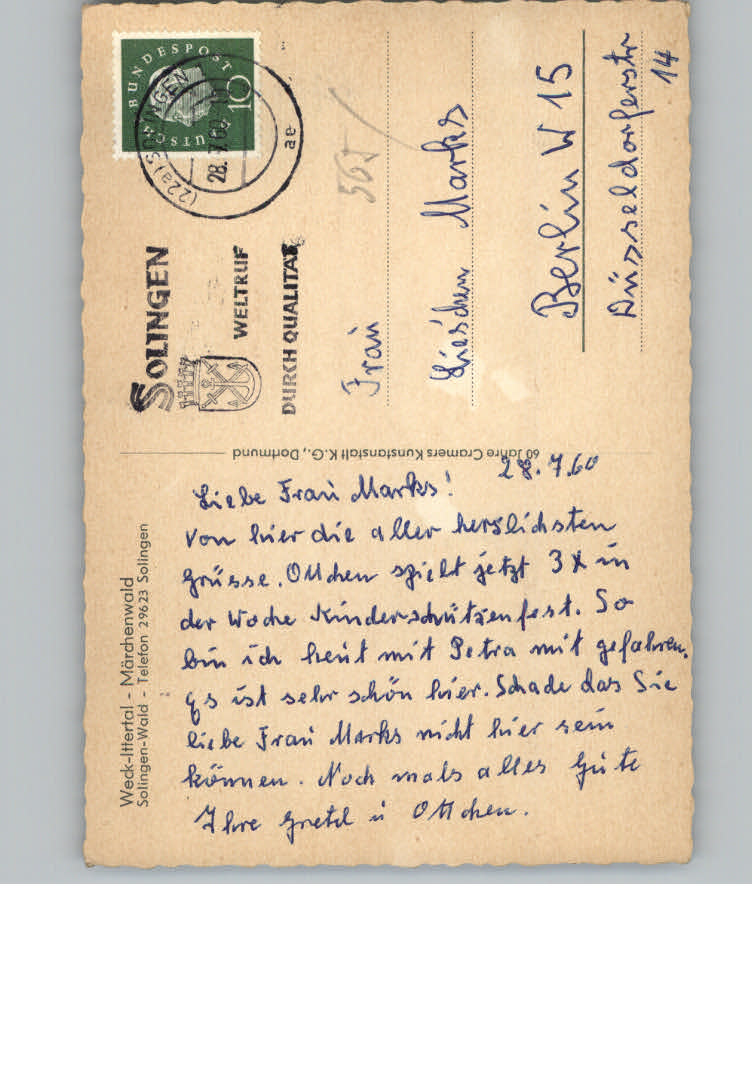 Weck-Ittertal - Märchenwald
Solingen-Wald - Telefon 29623 Solingen
28.7.60
Liebe Frau Marks!
Von hier die aller herzlichsten
Grüsse. Ottchen spielt jetzt 3 x in
der Woche Kinderschützenfest. So
bin ich heut mit Petra mit gefahren.
Es ist sehr schön hier. Schade das Sie
liebe Frau Marks nicht hier sein
können. Noch mals alles Gute
Ihre Gretel u Ottchen.
60 Jahre Cramers Kunstanstalt K.G., Dortmund
SOLINGEN
WELTRUF
DURCH QUALITÄT
(22a) SOLINGEN
28. 7. 60
ae
DEUTSCHE
BUNDESPOST
10
565
Frau
Lieschen Marks
Berlin W 15
Düsseldorferstr
14